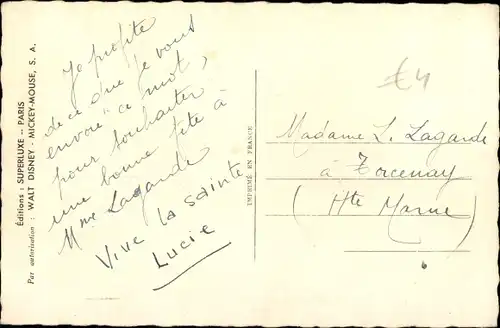 Éditions : SUPERLUXE -- PARIS
Par autorisation : WALT DISNEY - MICKEY-MOUSE, S. A.
Je profite
de ce que je vous
envoie ce mot,
pour souhaiter
une bonne fête à
Mme Lagarde
Vive la sainte
Lucie
IMPRIMÉ EN FRANCE
€4
Madame L. Lagarde
à Torcenay
(Hte Marne)